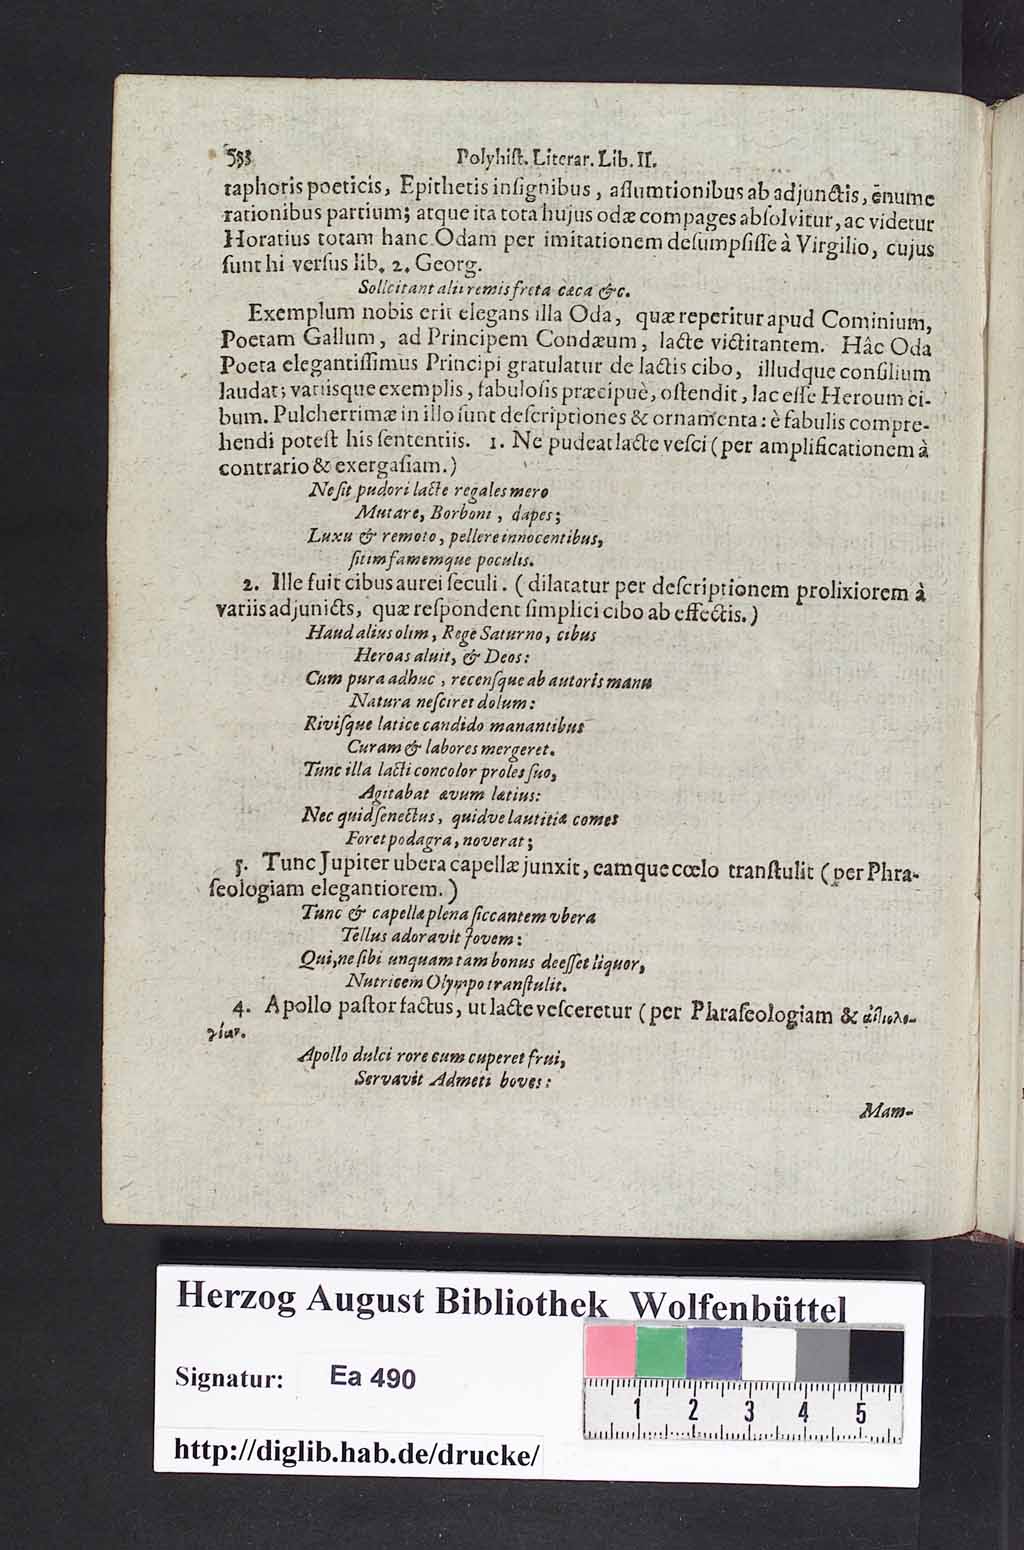 583 Polyhiſt. Literar. Lib. II.
taphoris poeticis, Epithetis inſignibus, aſſumtionibus ab adjunctis, ēnume
rationibus partium; atque ita tota hujus odæ compages abſolvitur, ac videtur
Horatius totam hanc Odam per imitationem deſumpſiſſe à Virgilio, cujus
ſunt hi verſus lib. 2. Georg.
Solicitant alii remis freta cæca &c.
Exemplum nobis erit elegans illa Oda, quæ reperitur apud Cominium,
Poetam Gallum, ad Principem Condæum, lacte victitantem. Hâc Oda
Poeta elegantiſſimus Principi gratulatur de lactis cibo, illudque conſilium
laudat; variisque exemplis, fabuloſis præcipuè, oſtendit, lac eſſe Heroum ci-
bum. Pulcherrimæ in illo ſunt deſcriptiones & ornamenta: è fabulis compre-
hendi poteſt his ſententiis. 1. Ne pudeat lacte veſci (per amplificationem à
contrario & exergaſiam.)
Ne ſit pudori lacte regales mero
Mutare, Borboni, dapes;
Luxu & remoto, pellere innocentibus,
ſitim famemque poculis.
2. Ille fuit cibus aurei ſeculi. (dilatatur per deſcriptionem prolixiorem à
variis adjunicts, quæ reſpondent ſimplici cibo ab effectis.)
Haud alius olim, Rege Saturno, cibus
Heroas aluit, & Deos:
Cum pura adhuc, recenſque ab autoris manu
Natura neſciret dolum:
Riviſque latice candido manantibus
Curam & labores mergeret.
Tunc illa lacti concolor proles ſuo,
Agitabat ævum lætius:
Nec quid ſenectus, quidve lautitiæ comes
Foret podagra, noverat;
3. Tunc Jupiter ubera capellæ junxit, eamque cœlo tranſtulit (per Phra-
ſeologiam elegantiorem.)
Tunc & capellæ plena ſiccantem vbera
Tellus adoravit Jovem:
Qui, ne ſibi unquam tam bonus deeſſet liquor,
Nutricem Olympo tranſtulit.
4. Apollo paſtor factus, ut lacte veſceretur (per Phraſeologiam & ἀιτιολο-
γίαν.
Apollo dulci rore cum cuperet frui,
Servavit Admeti boves:
Mam-
Herzog August Bibliothek Wolfenbüttel
Signatur: Ea 490
1 2 3 4 5
http://diglib.hab.de/drucke/